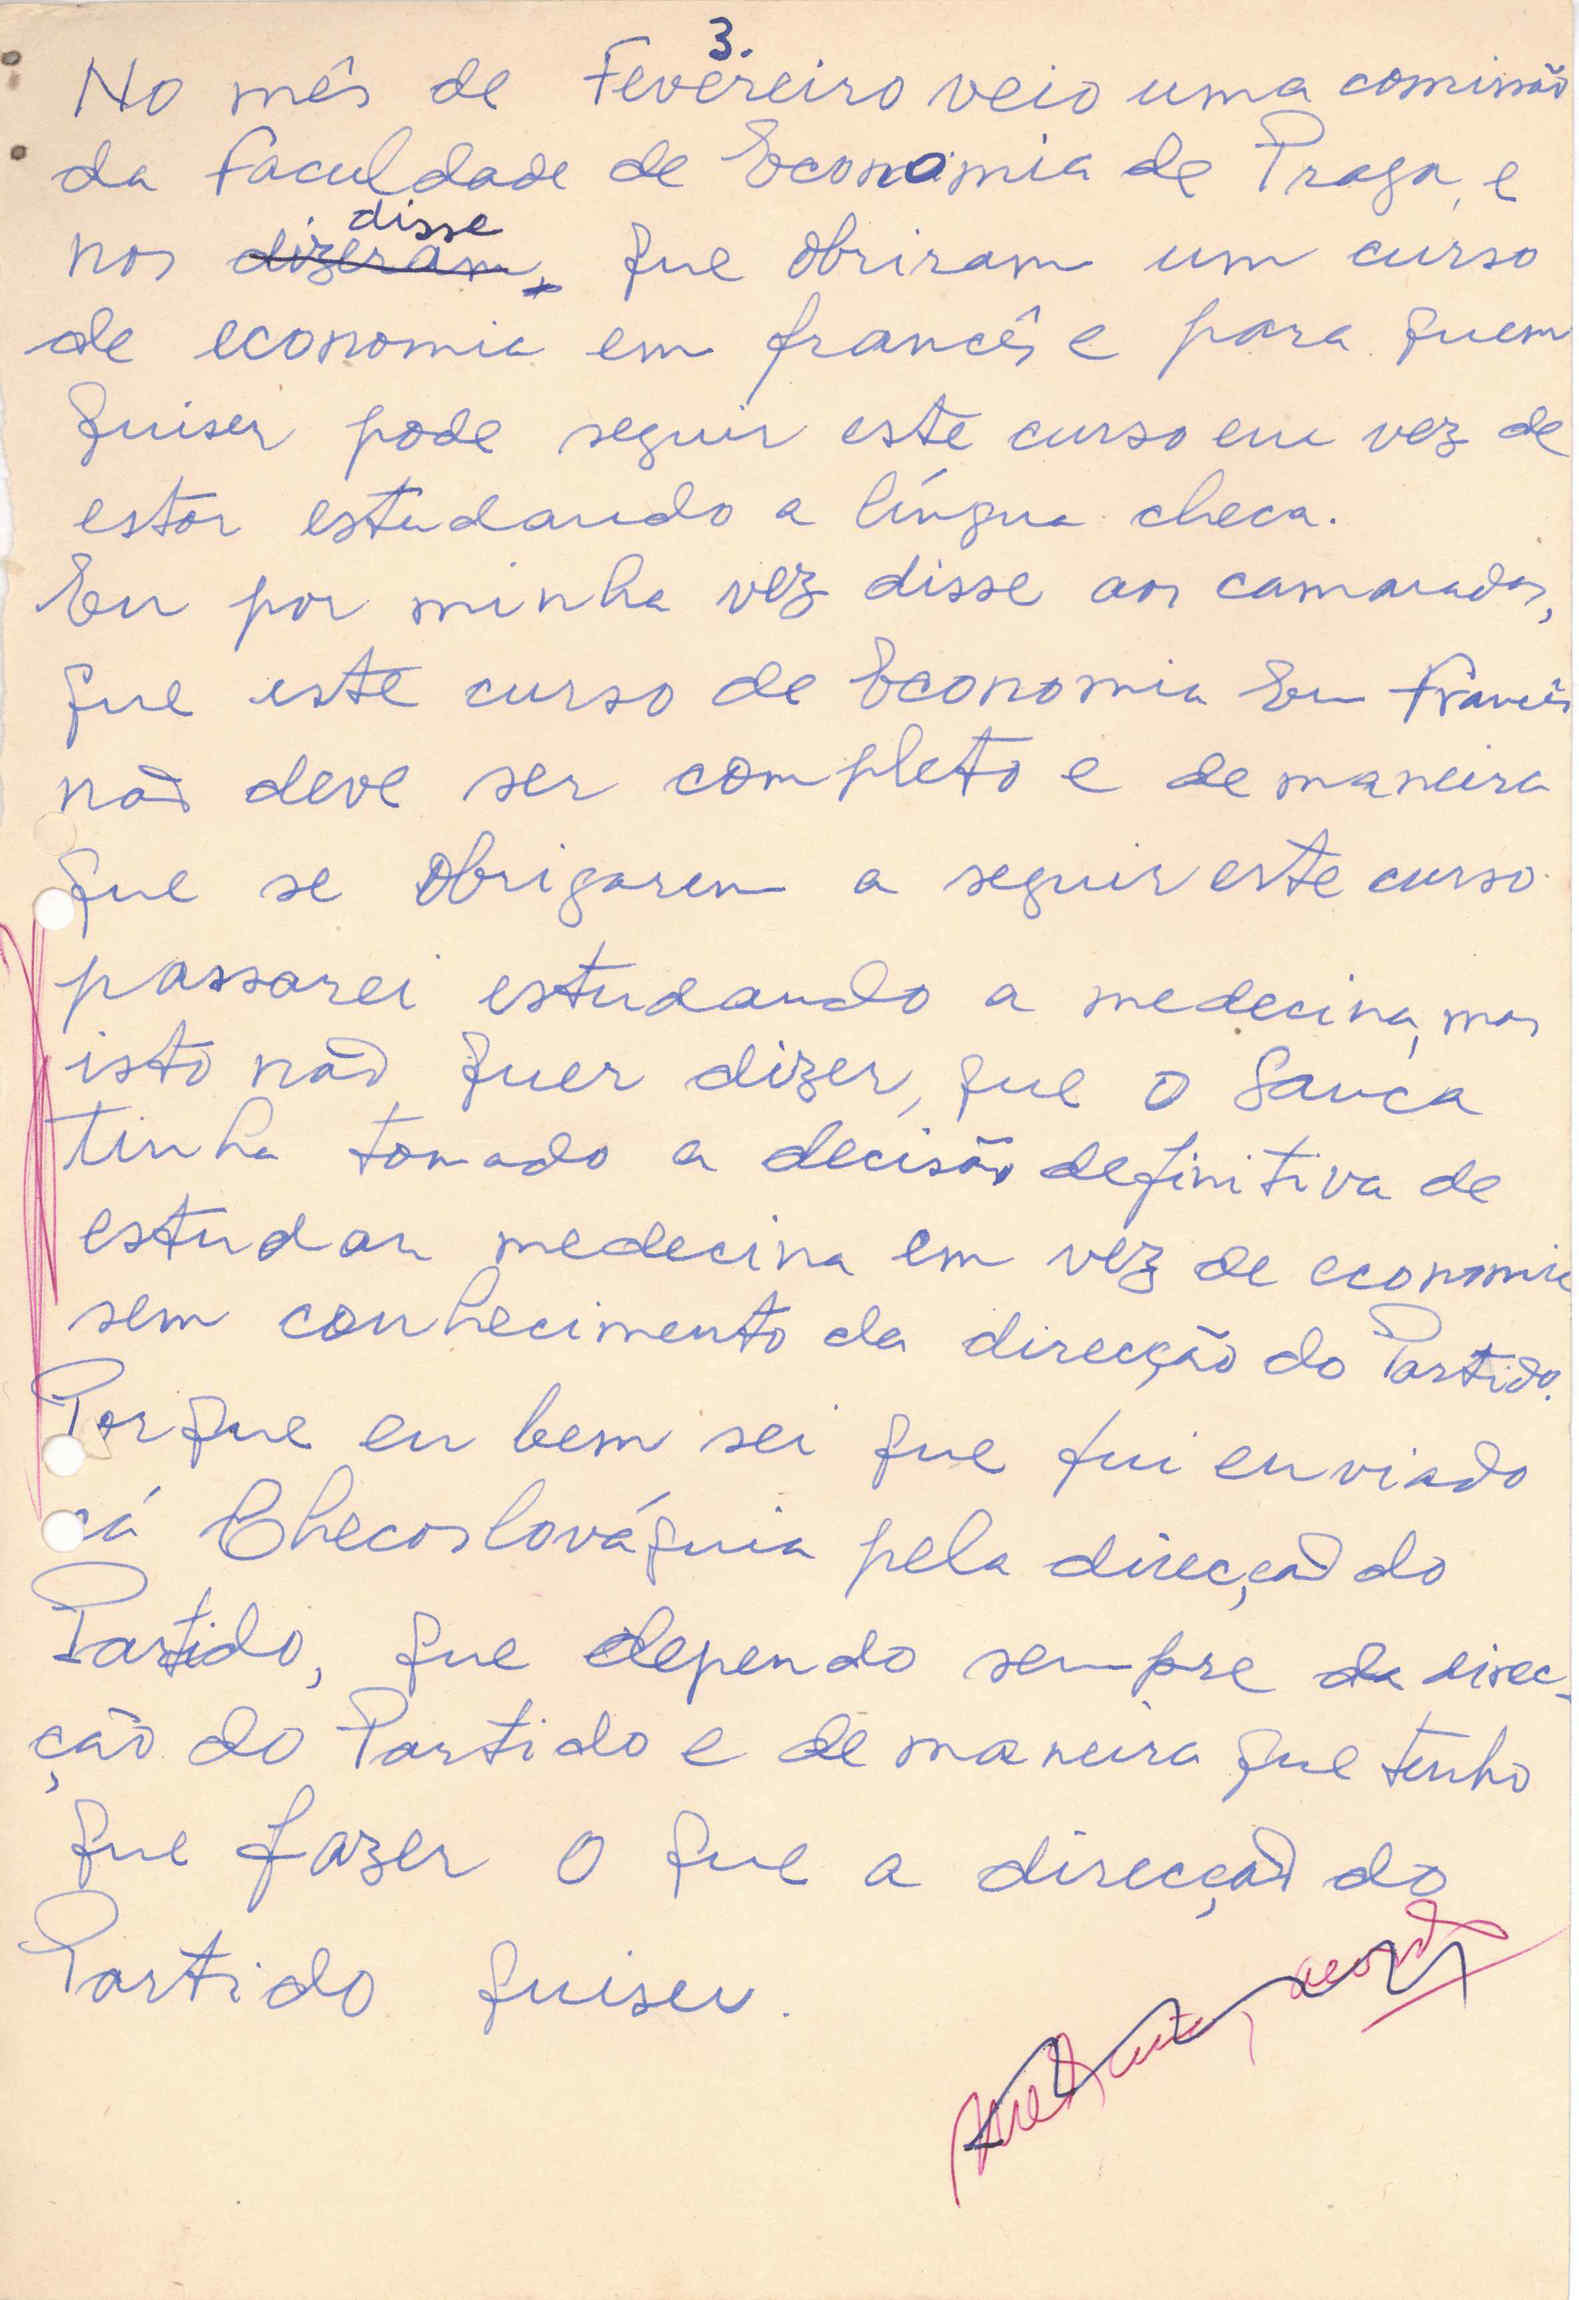 3.
No mês de Fevereiro veio uma comissão
da Faculdade de Economia de Praga, e
disse
nos dizeram, que abriram um curso
de economia em francês e para quem
quiser pode seguir este curso em vez de
estar estudando a língua checa.
Eu por minha vez disse aos camaradas,
que este curso de Economia Em Francês
não deve ser completo e de maneira
que se obrigarem a seguir este curso
passarei estudando a medecina, mas
isto não quer dizer, que o Sanca
tinha tomado a decisão definitiva de
estudar medecina em vez de economia
sem conhecimento da direcção do Partido.
Porque eu bem sei que fui enviado
cá Checoslováquia pela direcção do
Partido, que dependo sempre da direc-
ção do Partido e de maneira que tenho
que fazer o que a direcção do
Partido quiser.